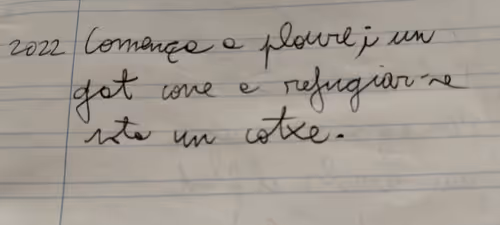 2022 Comença a ploure; un
gat corre a refugiar-se
sota un cotxe.